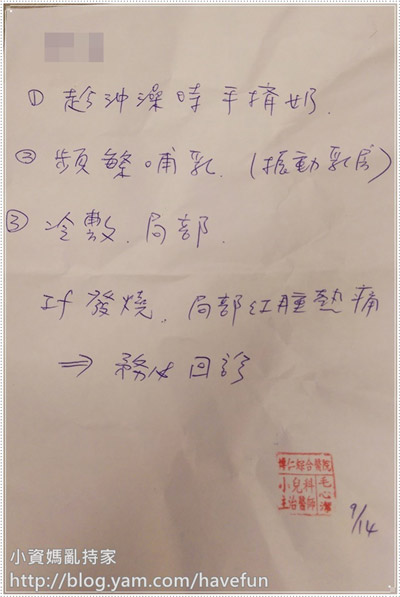 ① 趁沖澡時手擠奶.
② 頻繁哺乳. (振動乳房)
③ 冷敷. 局部.
If 發燒. 局部紅腫熱痛
⇒ 務必回診
博仁綜合醫院
小兒科
主治醫師
毛心潔
9/14
小資媽亂持家
http://blog.yam.com/havefun